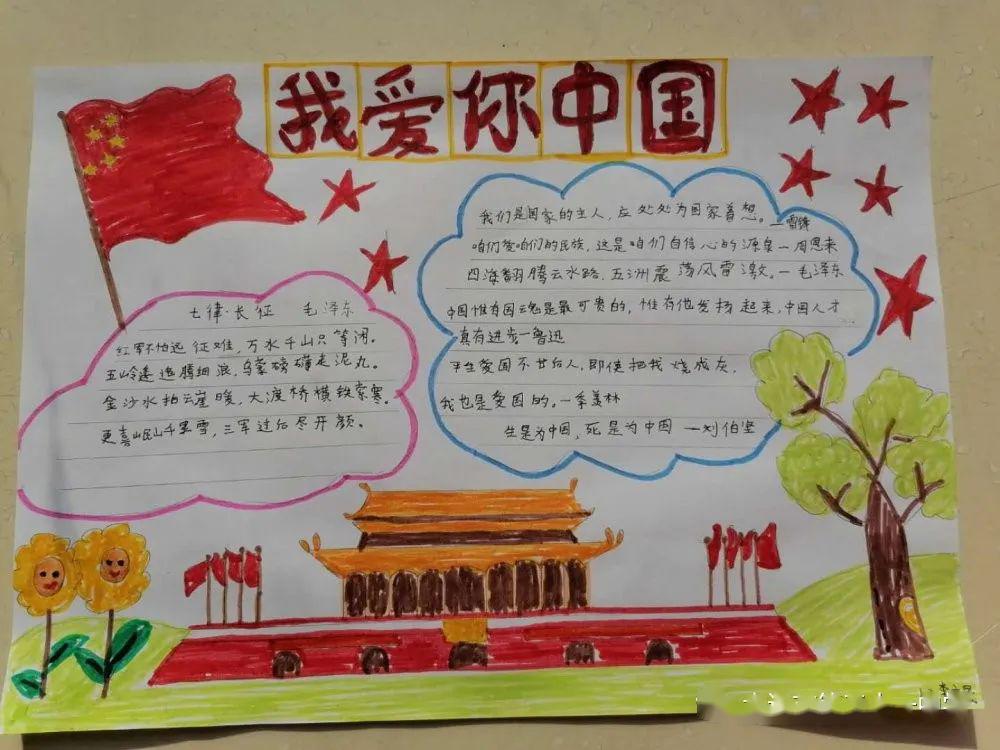 我爱你中国
七律·长征 毛泽东
红军不怕远征难，万水千山只等闲。
五岭逶迤腾细浪，乌蒙磅礴走泥丸。
金沙水拍云崖暖，大渡桥横铁索寒。
更喜岷山千里雪，三军过后尽开颜。
我们是国家的主人，应处处为国家着想。—雷锋
咱们爱咱们的民族，这是咱们自信心的源泉—周恩来
四海翻腾云水路，五洲震荡风雷激。—毛泽东
中国惟有国魂是最可贵的，惟有他发扬起来，中国人才
真有进步—鲁迅
平生爱国不甘后人，即使把我烧成灰，
我也是爱国的。—季羡林
生是为中国，死是为中国 —刘伯坚